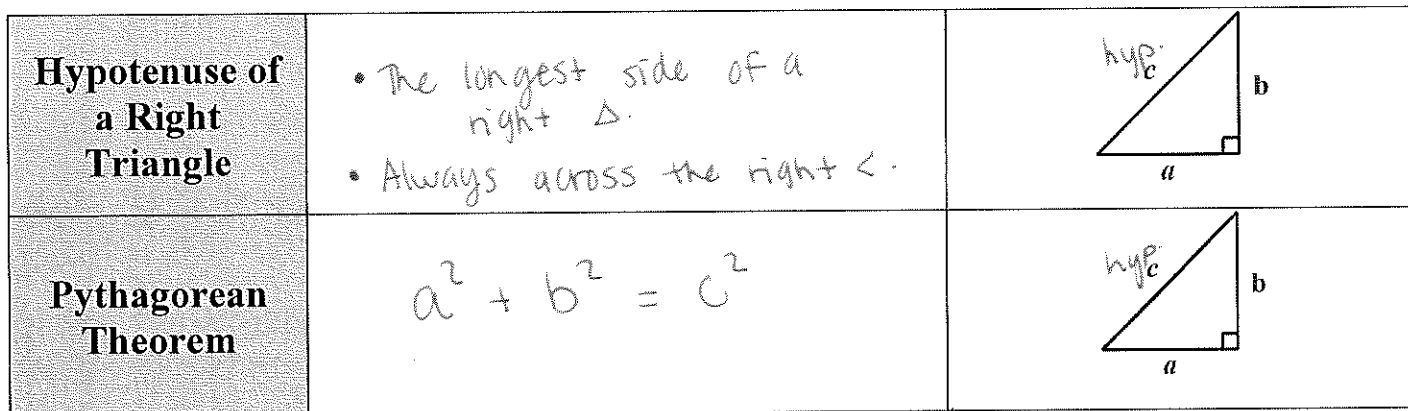 Hypotenuse of
a Right
Triangle
• The longest side of a
right Δ.
• Always across the right <.
hyp.
c
b
a
Pythagorean
Theorem
a² + b² = c²
hyp.
c
b
a